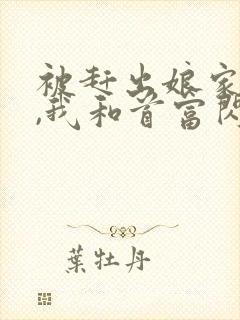 被赶出娘家
,我和首富闪
葉牡丹